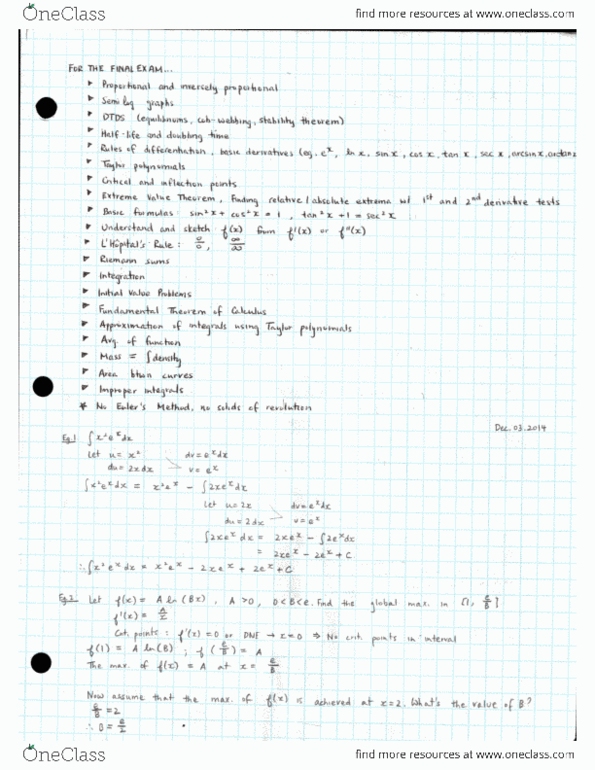 OneClass
find more resources at www.oneclass.com
FOR THE FINAL EXAM...
▶ Proportional and inversely proportional
▶ Semilog graphs
▶ DTDS (equilibriums, cob-webbing, stability theorem)
▶ Half-life and doubling time
▶ Rules of differentiation, basic derivatives (eg. e^x, ln x, sin x, cos x, tan x, sec x, arcsin x, arctan x
▶ Taylor polynomials
▶ Critical and inflection points
▶ Extreme Value Theorem, Finding relative/absolute extrema w/ 1st and 2nd derivative tests
▶ Basic formulas: sin²x + cos²x = 1, tan²x + 1 = sec²x
▶ Understand and sketch f(x) from f'(x) or f''(x)
▶ L'Hôpital's Rule: 0/0, ∞/∞
▶ Riemann sums
▶ Integration
▶ Initial Value Problems
▶ Fundamental Theorem of Calculus
▶ Approximation of integrals using Taylor polynomials
▶ Avg. of function
▶ Mass = ∫density
▶ Area btwn curves
▶ Improper integrals
* No Euler's Method, no solids of revolution
Dec. 03. 2014
Eg.1 ∫x²e^x dx
Let u = x² dv = e^x dx
du = 2x dx v = e^x
∫x²e^x dx = x²e^x - ∫2xe^x dx
Let u = 2x dv = e^x
du = 2 dx v = e^x
∫2xe^x dx = 2xe^x - ∫2e^x dx
= 2xe^x - 2e^x + C
∴ ∫x²e^x dx = x²e^x - 2xe^x + 2e^x + C
Eg.2 Let f(x) = A ln(Bx), A > 0, 0 < B < e. Find the global max. in [1, e/B]
f'(x) = A/x
Crit. points: f'(x) = 0 or DNE → x = 0 ⇒ No crit. points in interval
f(1) = A ln(B); f(e/B) = A
The max. of f(x) = A at x = e/B
Now assume that the max. of f(x) is achieved at x = 2. What's the value of B?
e/B = 2
∴ B = e/2
OneClass
find more resources at www.oneclass.com